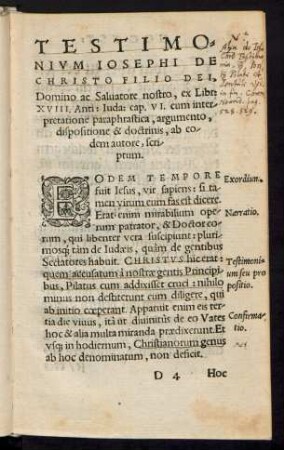 TESTIMO-
NIVM IOSEPHI DE
CHRISTO FILIO DEI,
Domino ac Saluatore nostro, ex Libri
XVIII. Anti: Iuda: cap. VI. cum inter-
pretatione paraphrastica, argumento,
dispositione & doctrinis, ab eo-
dem autore, scri-
ptum.
EODEM TEMPORE
fuit Iesus, vir sapiens: si ta-
men virum eum fas est dicere.
Erat enim mirabilium ope-
rum patrator, & Doctor eo-
rum, qui libenter vera suscipiunt: pluri-
mosq; tàm de Iudæis, quàm de gentibus
Sectatores habuit. CHRISTVS hic erat:
quem accusatum à nostræ gentis Principi-
bus, Pilatus cum addixisset cruci: nihilo
minus non destiterunt eum diligere, qui
ab initio cœperant. Apparuit enim eis ter-
tia die viuus, ità ut diuinitùs de eo Vates
hoc & alia multa miranda prædixerunt. Et
vsq; in hodiernum, Christianorum genus
ab hoc denominatum, non deficit.
Exordium.
Narratio.
Testimoni-
um seu pro
positio.
Confirma-
tio.
D 4 Hoc